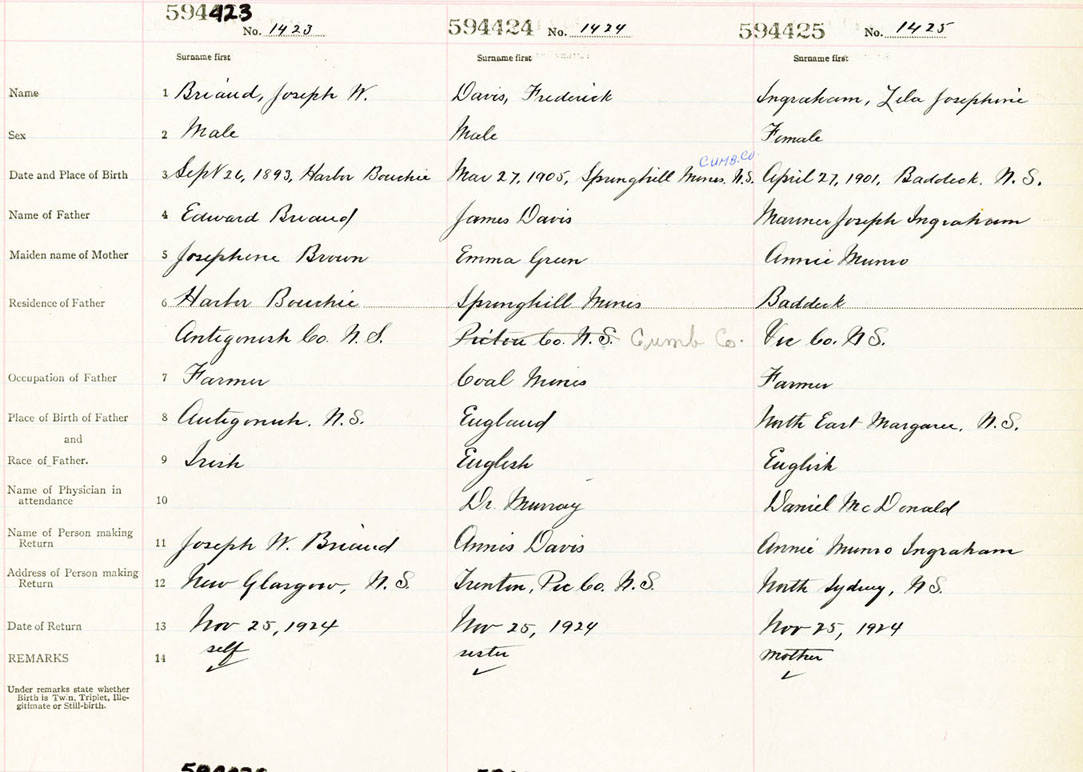 594423
No. 1423
594424 No. 1424
594425 No. 1425
Surname first Surname first Surname first
Name 1 Briand, Joseph W. Davis, Frederick Ingraham, Lela Josephine
Sex 2 Male Male Female
Cumb. Co.
Date and Place of Birth 3 Sept 26, 1893, Harbor Bouchie Mar 27, 1905, Springhill Mines. N.S. April 27, 1901, Baddeck. N.S.
Name of Father 4 Edward Briand James Davis Mariner Joseph Ingraham
Maiden name of Mother 5 Josephine Brown Emma Green Annie Munro
Residence of Father 6 Harbor Bouchie Springhill Mines Baddeck
Antigonish Co. N.S. Pictou Co. N.S. Cumb Co. Vic Co. N.S.
Occupation of Father 7 Farmer Coal Mines Farmer
Place of Birth of Father 8 Antigonish. N.S. England North East Margaree, N.S.
and
Race of Father. 9 Irish English English
Name of Physician in
attendance 10 Dr. Murray Daniel McDonald
Name of Person making
Return 11 Joseph W. Briand Annis Davis Annie Munro Ingraham
Address of Person making
Return 12 New Glasgow, N.S. Trenton, Pic Co. N.S. North Sydney, N.S.
Date of Return 13 Nov 25, 1924 Nov 25, 1924 Nov 25, 1924
REMARKS 14 self sister mother
Under remarks state whether
Birth is Twin, Triplet, Ille-
gitimate or Still-birth.